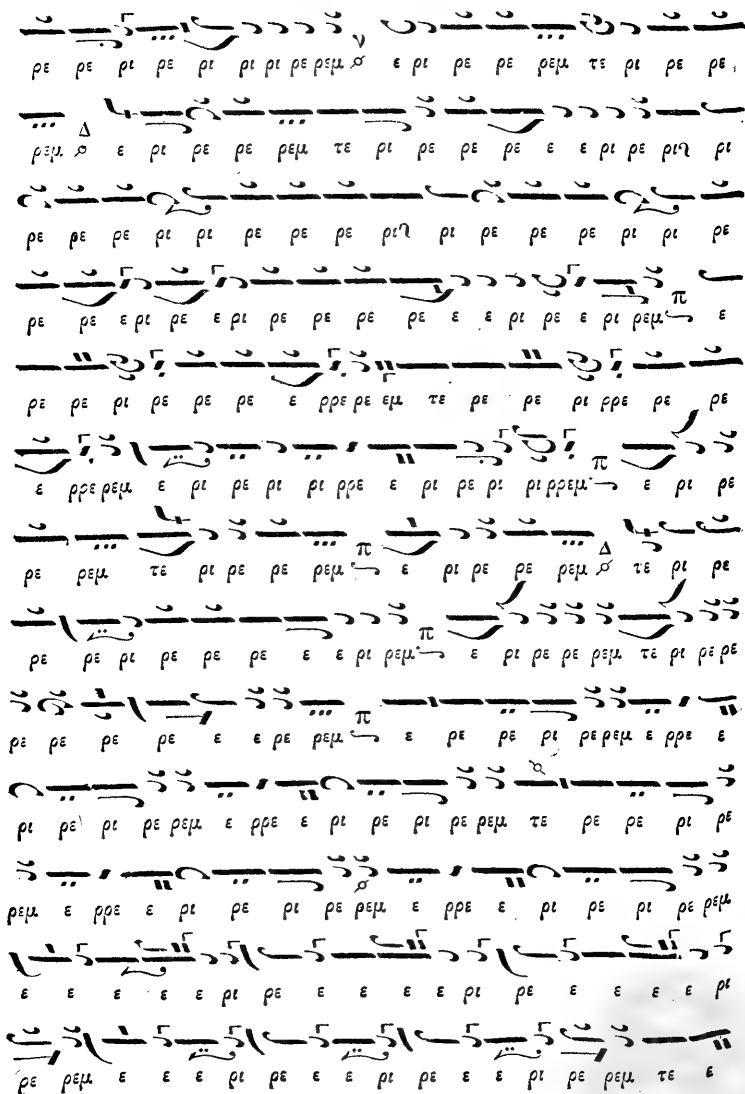 ρε ρε ρι ρε ρι ρι ρι ρε ρεμ ν ε ρι ρε ρε ρεμ τε ρι ρε ρε
ρεμ Δ ε ρι ρε ρε ρεμ τε ρι ρε ρε ρε ε ε ρι ρε ρι ρι
ρε ρε ρε ρι ρι ρε ρε ρε ρι ρι ρε ρε ρε ρι ρι ρε
ρε ρε ε ρι ρε ε ρι ρε ρε ρε ρε ε ε ρι ρε ε ρι ρεμ π ε
ρε ρε ρι ρε ρε ρε ε ρρε ρε εμ τε ρε ρε ρι ρρε ρε ρε
ε ρρε ρεμ ε ρι ρε ρι ρι ρρε ε ρι ρε ρι ρι ρρεμ π ε ρι ρε
ρε ρεμ τε ρι ρε ρε ρεμ π ε ρι ρε ρε ρεμ Δ τε ρι ρε
ρε ρε ρι ρε ρε ρε ε ε ρι ρεμ π ε ρι ρε ρε ρεμ τε ρι ρε ρε
ρε ρε ρε ρε ε ε ρε ρεμ π ε ρε ρε ρι ρε ρεμ ε ρρε ε
ρι ρε ρι ρε ρεμ ε ρρε ε ρι ρε ρι ρε ρεμ τε ρε ρε ρι ρε
ρεμ ε ρρε ε ρι ρε ρι ρε ρεμ ε ρρε ε ρι ρε ρι ρε ρεμ
ε ε ε ε ε ρι ρε ε ε ε ε ρι ρε ε ε ε ε ρι
ρε ρεμ ε ε ε ρι ρε ε ε ρι ρε ε ε ρι ρε ρεμ τε ε